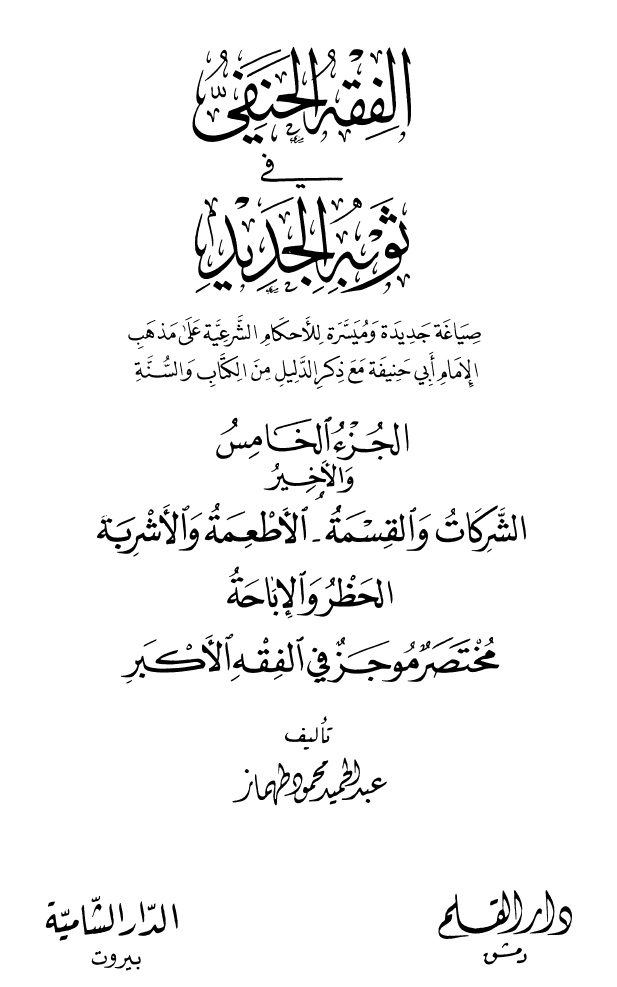 الفِقْهُ الحَنَفِيّ
في
ثَوْبِهِ الجَدِيْدِ
صِيَاغَة جَدِيدَة وَمُيَسَّرَة لِلأَحكَامِ الشَّرعِيَّة عَلَىٰ مَذهَبِ
الإِمَامِ أَبِي حَنِيفَة مَعَ ذِكرِ الدَّلِيلِ مِنَ الكِتَابِ وَالسُّنَّةِ
الجُزْءُ الخَامِسُ
وَالأَخِيرُ
الشَّرِكَاتُ وَالقِسْمَةُ - الأَطْعِمَةُ وَالأَشْرِبَة
الحَظْرُ وَالإِبَاحَةُ
مُخْتَصَرٌ مُوجَزٌ فِي الفِقْهِ الأَكْبَرِ
تأليف
عبد الحميد محمود طهماز
دار القلم
دمشق
الدّار الشّاميّة
بيروت